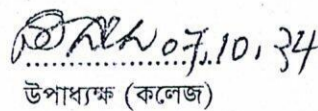 07.10.24
উপাধ্যক্ষ (কলেজ)